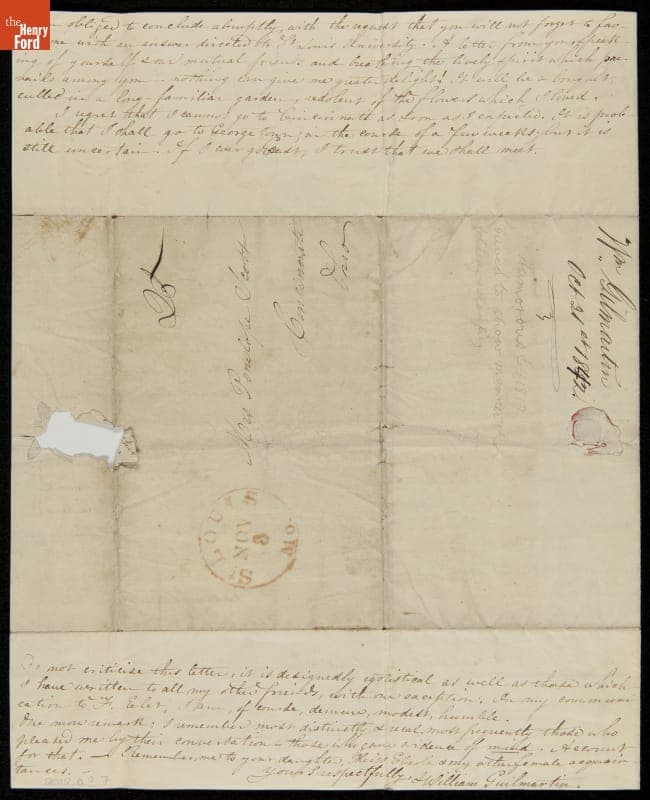 the
Henry
Ford
obliged to conclude abruptly, with the request that you will not forget to fav-
me with an answer directed to St Louis University. A letter from you speak-
ing of yourself & our mutual friends and breathing the lively spirit which pre-
vails among - nothing can give me greater delight! It will be a bouquet
culled in a long familiar garden, redolent of the flowers which I loved.
I regret that I cannot go to Cincinnati as soon as I expected. It is prob-
able that I shall go to George town in the course of a few weeks; but it is
still uncertain. If I ever go east, I trust that we shall meet.
25
Mrs Penelope Scott
Cincinnati
Ohio
Wm Guilmartin
Oct 31st 1842.
ST LOUIS Mo.
NOV
3
Do not criticise this letter; it is designedly egotistical as well as those which
I have written to all my other friends, with one exception. In my communi-
cation to Fr. Elet, I am, of course, demure, modest, humble.
One more remark; I remember most distinctly & recal most frequently those who
pleased me by their conversation - those who gave evidence of mind. Account
for that. — Remember me to your daughter, Miss & my other female acquain-
tances.
Yours respectfully William Guilmartin.